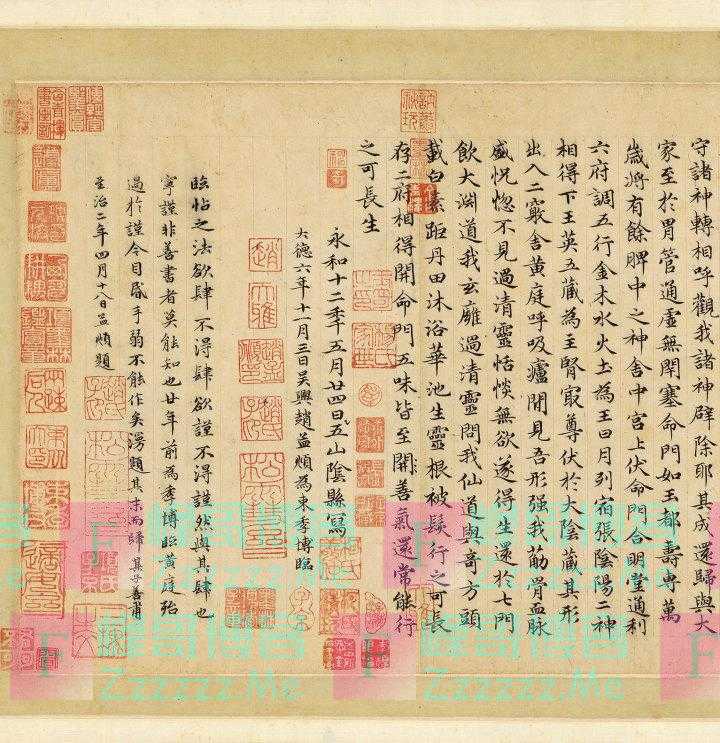 守諸神轉相呼觀我諸神辟除耶其成還歸與大
家至於胃管通虛無閉塞命門如玉都壽專萬
歲將有餘脾中之神舍中宮上伏命門合明堂通利
六府調五行金木水火土為王日月列宿張陰陽二神
相得下玉英五藏為主腎最尊伏於大陰藏其形
出入二竅舍黃庭呼吸廬間見吾形强我筋骨血脉
盛怳惚不見過清靈恬惔無欲遂得生還於七門
飲大淵道我玄廱過清靈問我仙道與奇方頭
載白素距丹田沐浴華池生靈根被髮行之可長
存二府相得開命門五味皆至開善氣還常能行
之可長生
永和十二年五月廿四日五山陰縣寫
大德六年十一月三日吳興趙孟頫為東季博臨
臨帖之法欲肆不得肆欲謹不得謹然與其肆也
寧謹非善書者莫能知也廿年前為季博臨黃庭殆
過於謹今目昏手弱不能作矣漫題其末而歸其子善甫
至治二年四月十八日孟頫題
趙
大雅
Zzzzzz.Me
Zzzzzz.Me